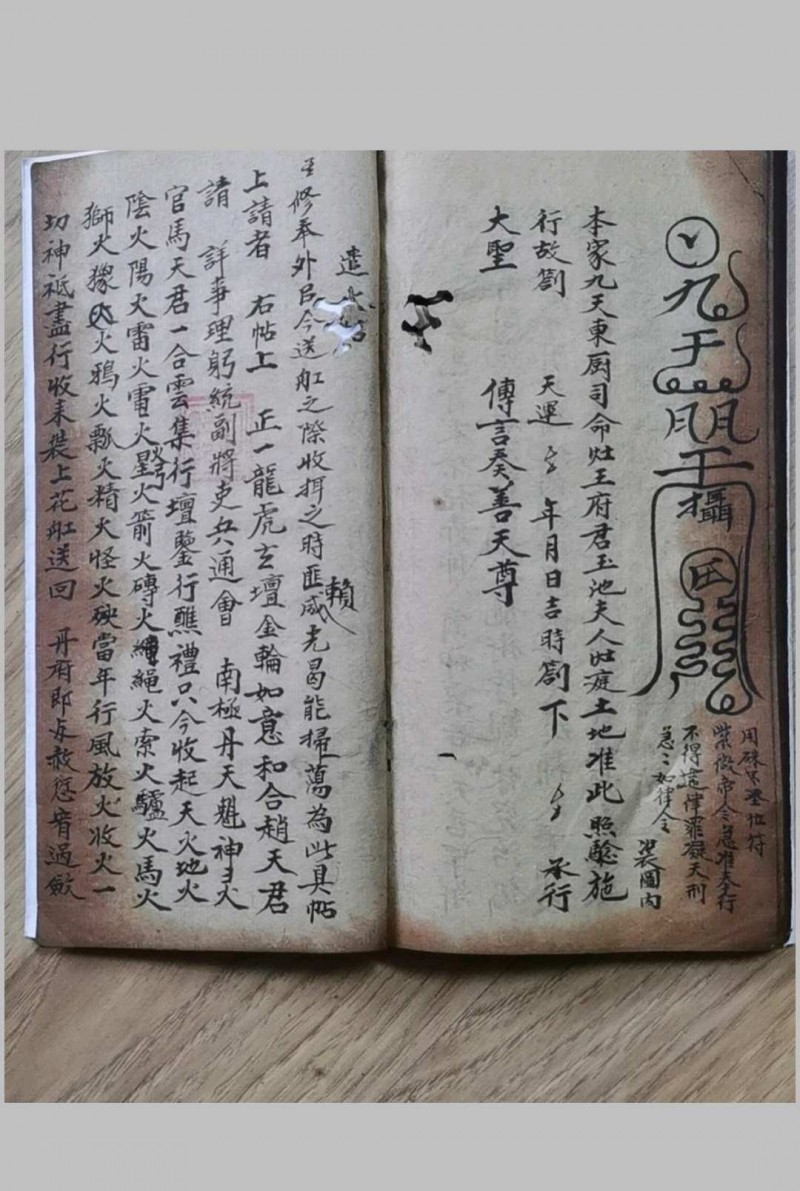 九
天
攝
用硃
紫微帝令急准奉行
不得違律罪礙天刑
急〻如律令
裳圖内
本家九天東厨司命灶王府君玉池夫人灶庭土地准此照驗施
行故劄 天運 年月日吉時劄下 承行
大聖 傳言奏善天尊
遣
修奉外邑今送舡之際收拜之時匪咸賴光曷能掃蕩為此具帖
上請者 右帖上 正一龍虎玄壇金輪如意和合趙天君
請 詳事理躬統副將吏兵通會 南極丹天魁神
官馬天君一合雲集行壇鑒行醮禮只今收起天火地火
陰火陽火雷火電火星火箭火磚火繩火索火驢火馬火
獅火獴火鴉火瓢火精火怪火殃當年行風放火收火一
切神祗盡行收来裝上花舡送回 丹府即与赦愆宥過歛